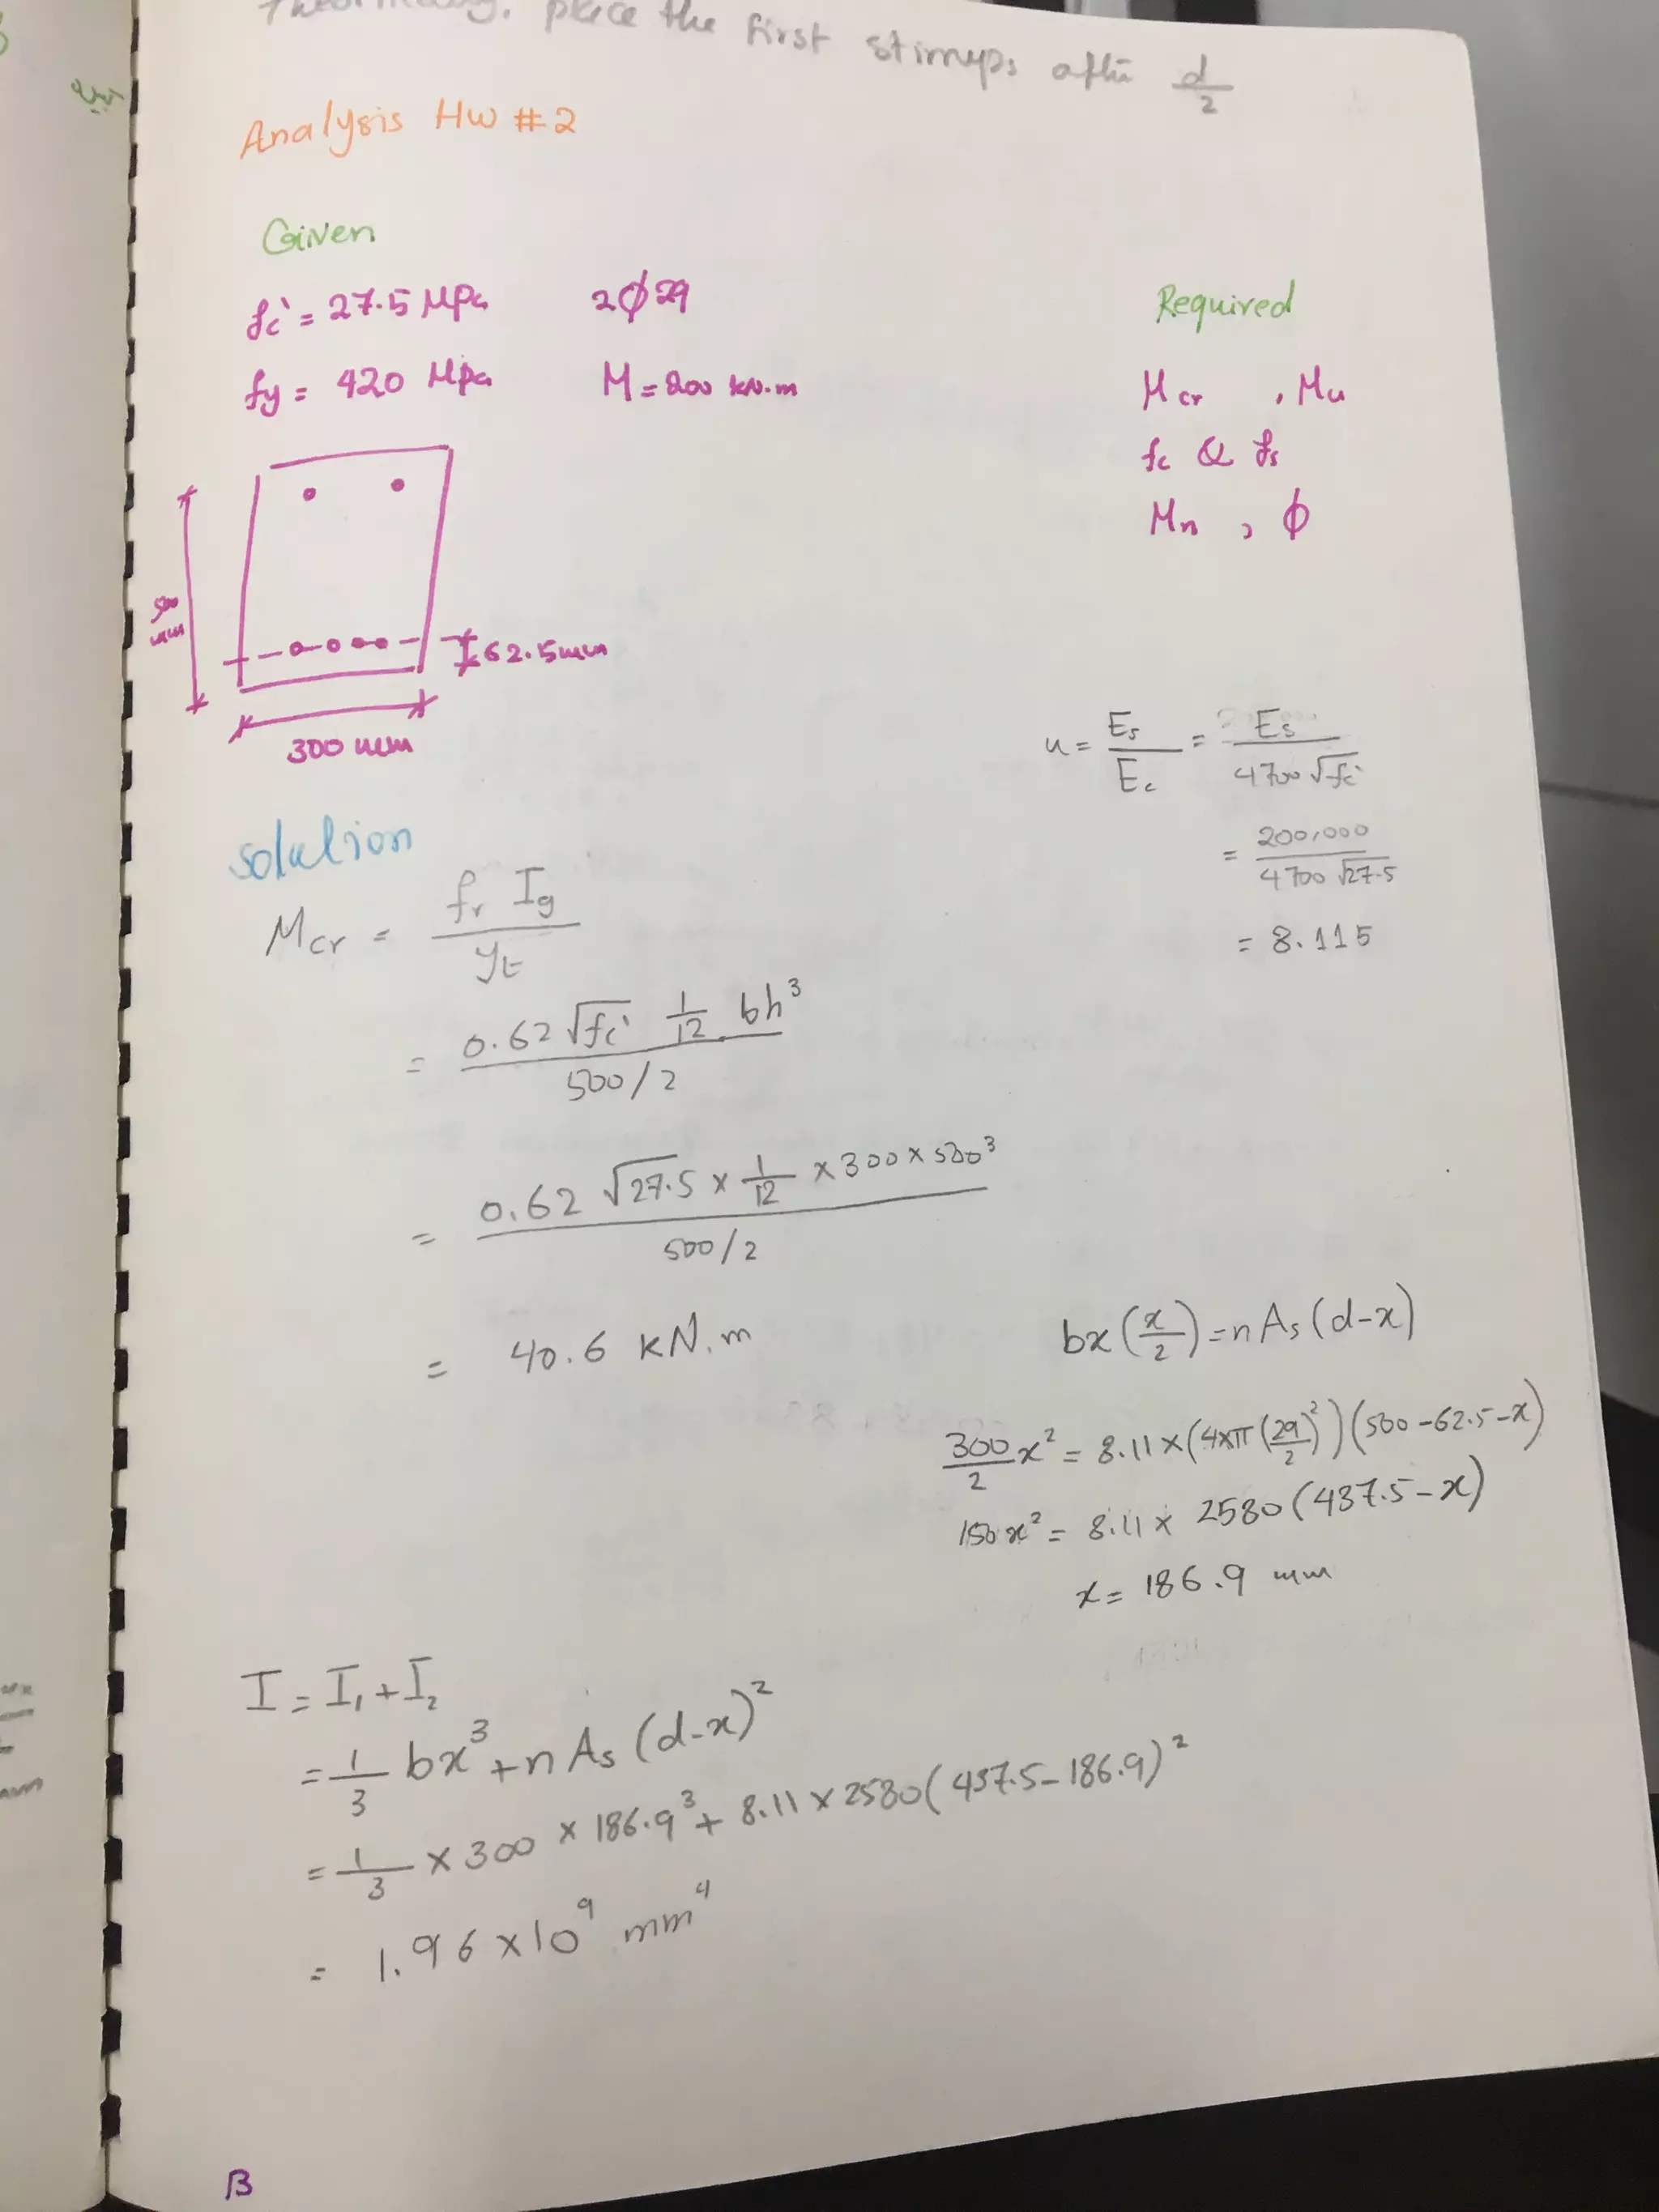 place the first stirrups after d/2
Analysis HW #2
Given
fc' = 27.5 MPa 2Φ29
fy = 420 Mpa M = 200 kN.m
Required
Mcr , Mu
fc & fs
Mn , Φ
500 mm
62.5mm
300 mm
n = Es/Ec = Es/(4700√fc')
= 200,000/(4700 √27.5)
= 8.115
solution
Mcr = fr Ig / yt
= 0.62 √fc' 1/12 bh³ / (500/2)
= 0.62 √27.5 × 1/12 × 300 × 500³ / (500/2)
= 40.6 kN.m
bx (x/2) = n As (d-x)
300/2 x² = 8.11 × (4×π (29/2)²) (500 - 62.5 - x)
150 x² = 8.11 × 2580 (437.5 - x)
x = 186.9 mm
I = I₁ + I₂
= 1/3 bx³ + n As (d-x)²
= 1/3 × 300 × 186.9³ + 8.11 × 2580 (437.5 - 186.9)²
= 1.96 × 10⁹ mm⁴
B